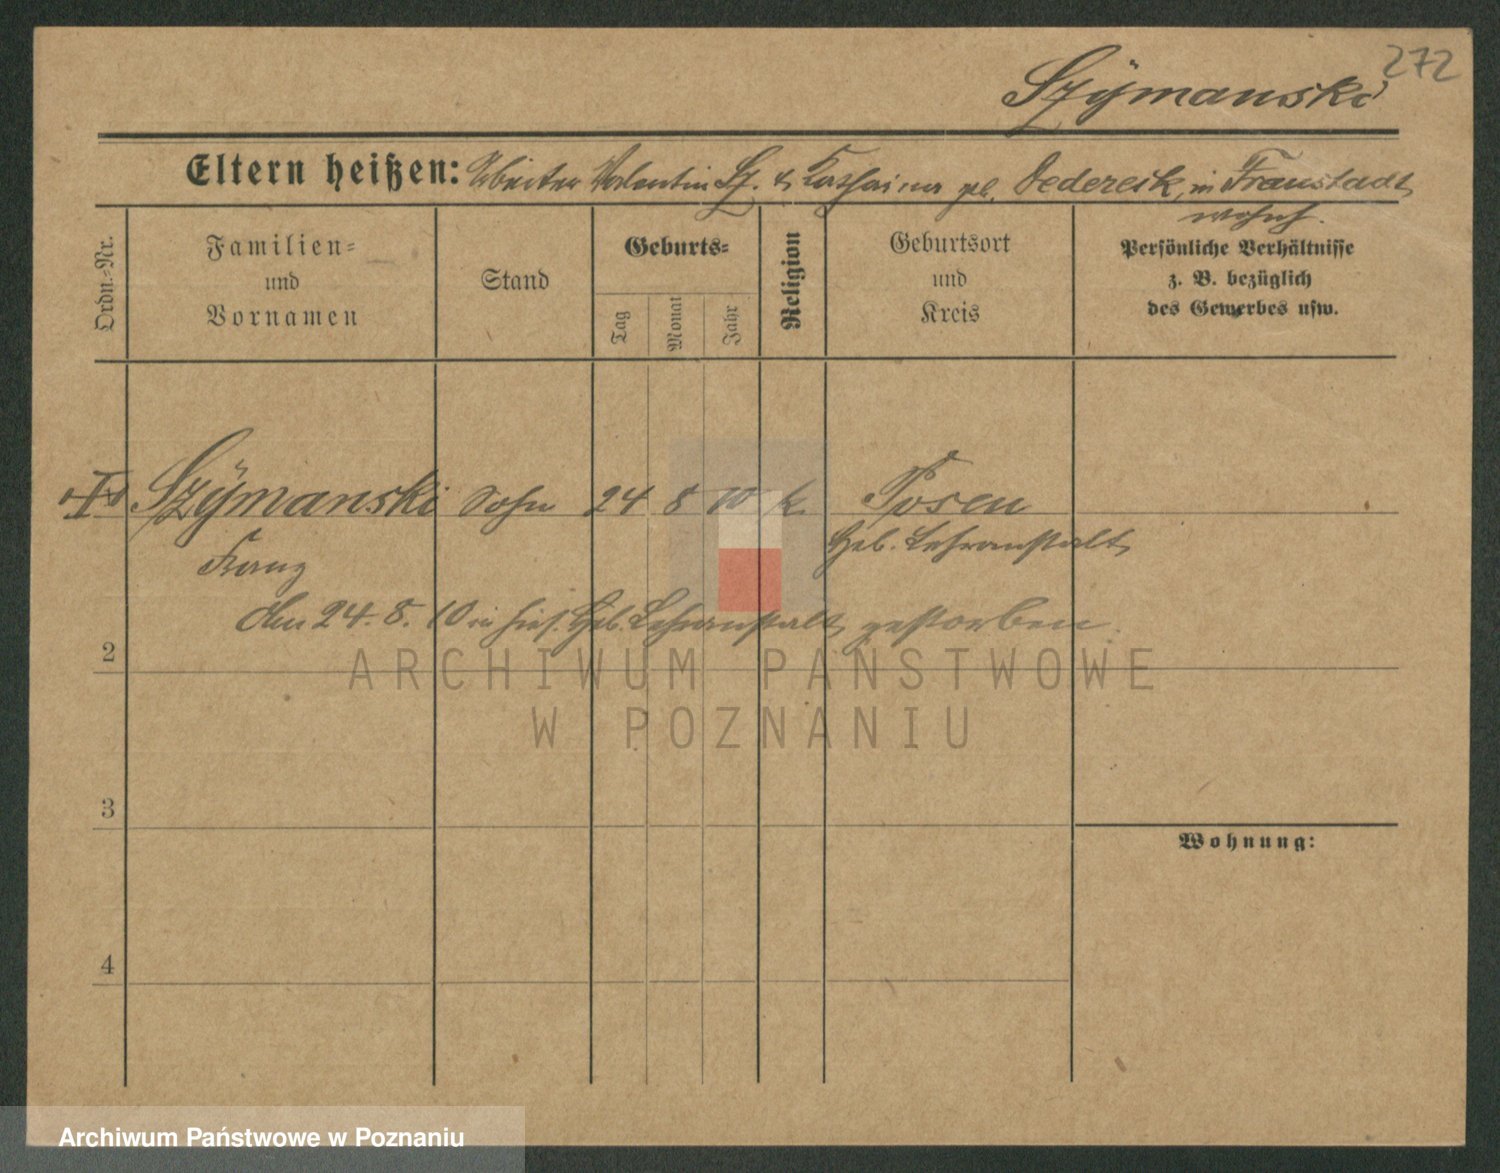 272
Szÿmanski
Eltern heißen: Arbeiter Valentin Sz. & Katharina geb. Dedereck, in Fraustadt
wohnh.
Ordn.-Nr.
Familien-
und
Vornamen
Stand
Geburts-
Tag
Monat
Jahr
Religion
Geburtsort
und
Kreis
Persönliche Verhältnisse
z. B. bezüglich
des Gewerbes usw.
Szÿmanski Sohn 24 8 10 k. Posen
Franz
Heb. Lehranstalt
den 24. 8. 10 in hies. Heb. Lehranstalt gestorben.
2
3
4
Wohnung:
ARCHIWUM PAŃSTWOWE
W POZNANIU
Archiwum Państwowe w Poznaniu